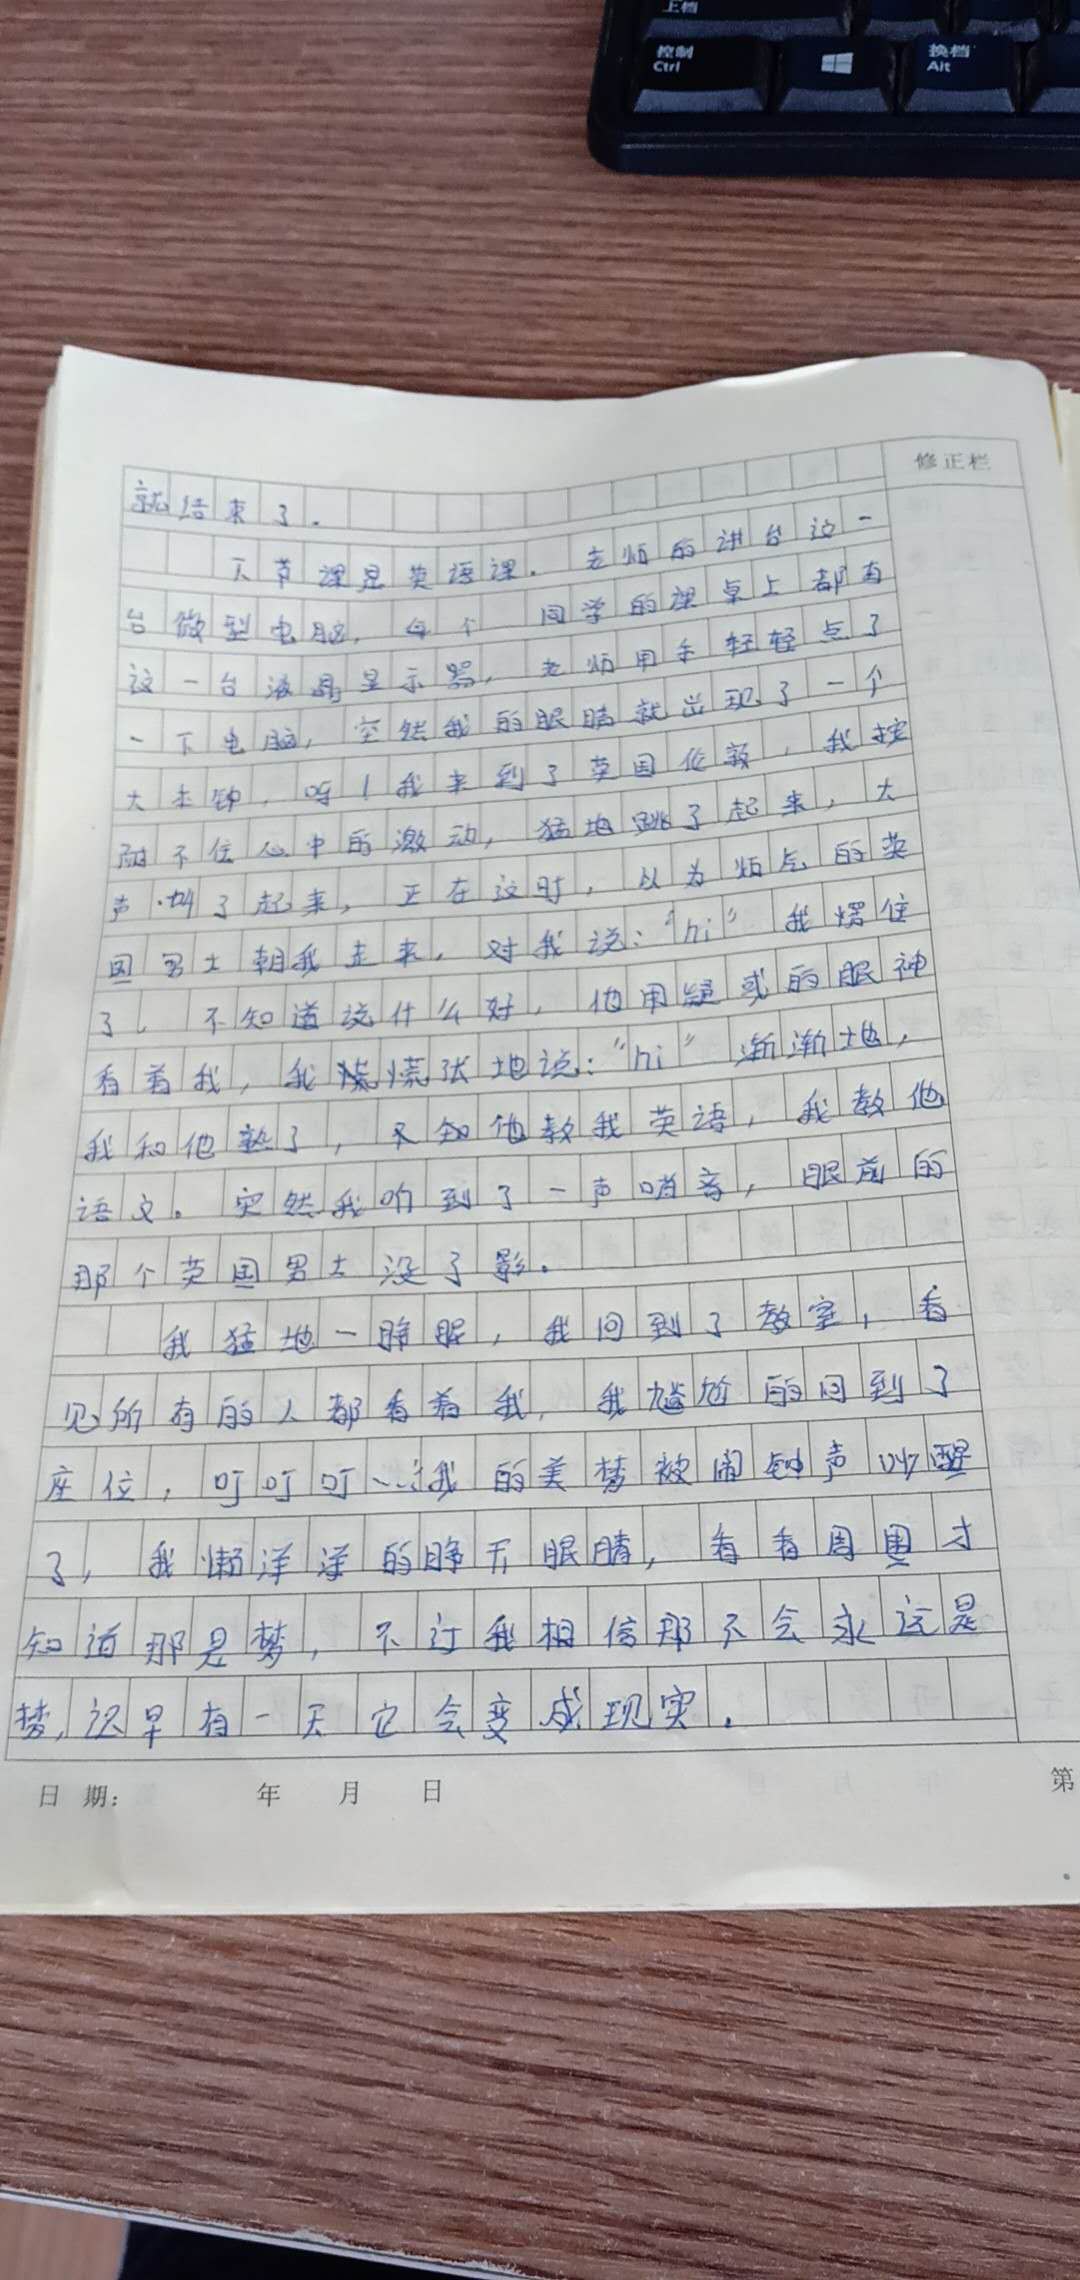 上档
控制
Ctrl
换档
Alt
修正栏
就结束了.
下节课是英语课.老师的讲台这一
台微型电脑,每个 同学的课桌上都有
这一台液晶显示器,老师用手轻轻点了
一下电脑,突然我的眼睛就出现了一个
大本钟,呀!我来到了英国伦敦,我按
耐不住心中的激动,猛地跳了起来,大
声叫了起来,正在这时,以为炳虍的英
国男士朝我走来,对我说:“hi”我愣住
了,不知道说什么好,他用疑或的眼神
看着我,我慌张地说:“hi”渐渐地,
我和他熟了,又知他教我英语,我教他
语文。突然我听到了一声哨音,眼前的
那个英国男士没了影.
我猛地一睁眼,我回到了教室,看
见所有的人都看着我,我尴尬的回到了
座位,叮叮叮……我的美梦被闹钟声吵醒
了,我懒洋洋的睁开眼睛,看看周围才
知道那是梦,不过我相信那不会永远是
梦,迟早有一天它会变成现实.
日期: 年 月 日
第